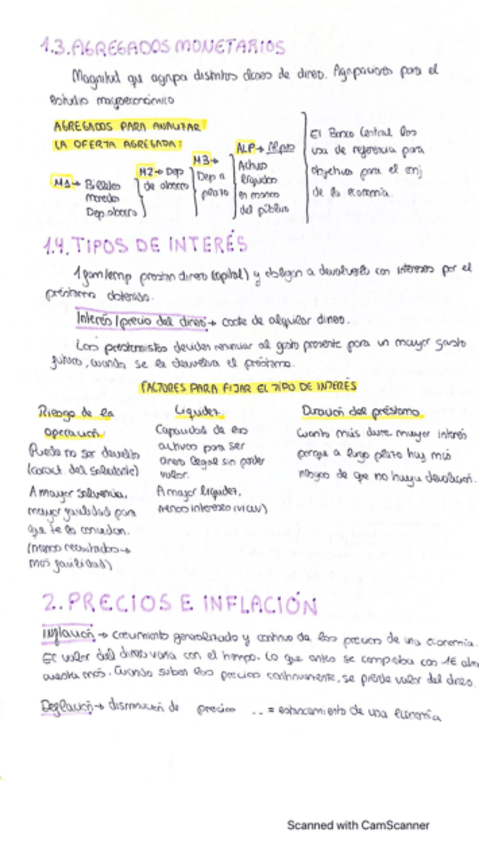 1.3. AGREGADOS MONETARIOS
Magnitud que agrupa distintos clases de dinero. Agrupaciones para el
estudio macroeconómico
AGREGADOS PARA ANALIZAR
LA OFERTA AGREGADA:
M1→ Billetes
monedas
Dep. ahorro
M2→ Dep
de ahorro
M3→
Dep a
plazo
ALP→
Activos
líquidos
en manos
del público
El Banco Central los
usa de referencia para
objetivos para el cnj
de la economía.
1.4. TIPOS DE INTERÉS
prestan dinero (capital) y obligan a devolverlo con intereses por el
préstamo obtenido.
Interés/precio del dinero→ coste de alquilar dinero.
Los prestamistas deciden renunciar al gasto presente para un mayor gasto
futuro, cuando se le devuelva el préstamo.
FACTORES PARA FIJAR EL TIPO DE INTERÉS
Riesgo de la
operación
Puede no ser devuelto
(caract del solicitante)
A mayor solvencia,
mayor facilidad para
que te lo concedan.
(menos resultados→
mas facilidad)
Liquidez
Capacidad de los
activos para ser
dinero legal sin perder
valor.
A mayor liquidez,
menos intereses
Duración del préstamo
Cuanto más dure, mayor interés
porque a largo plazo hay más
riesgo de que no haya devolución.
2. PRECIOS E INFLACIÓN
Inflación → crecimiento generalizado y continuo de los precios de una economía.
El valor del dinero varía con el tiempo. Lo que antes se compraba con 1€ ahora
cuesta más. Cuando suben los precios continuamente, se pierde valor del dinero.
Deflación→ disminución de precios .. = estancamiento de una economía
Scanned with CamScanner